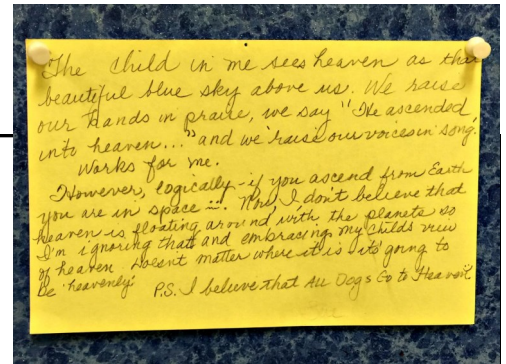 The child in me sees heaven as that
beautiful blue sky above us. We raise
our hands in praise, we say "He ascended
into heaven..." and we raise our voices in song.
Works for me.
However, logically - if you ascend from Earth
you are in space . Now, I don't believe that
heaven is floating around with the planets so
I'm ignoring that and embracing my childs view
of heaven. Doesnt matter where it is its going to
be 'heavenly'. P.S. I believe that All Dogs Go to Heaven.